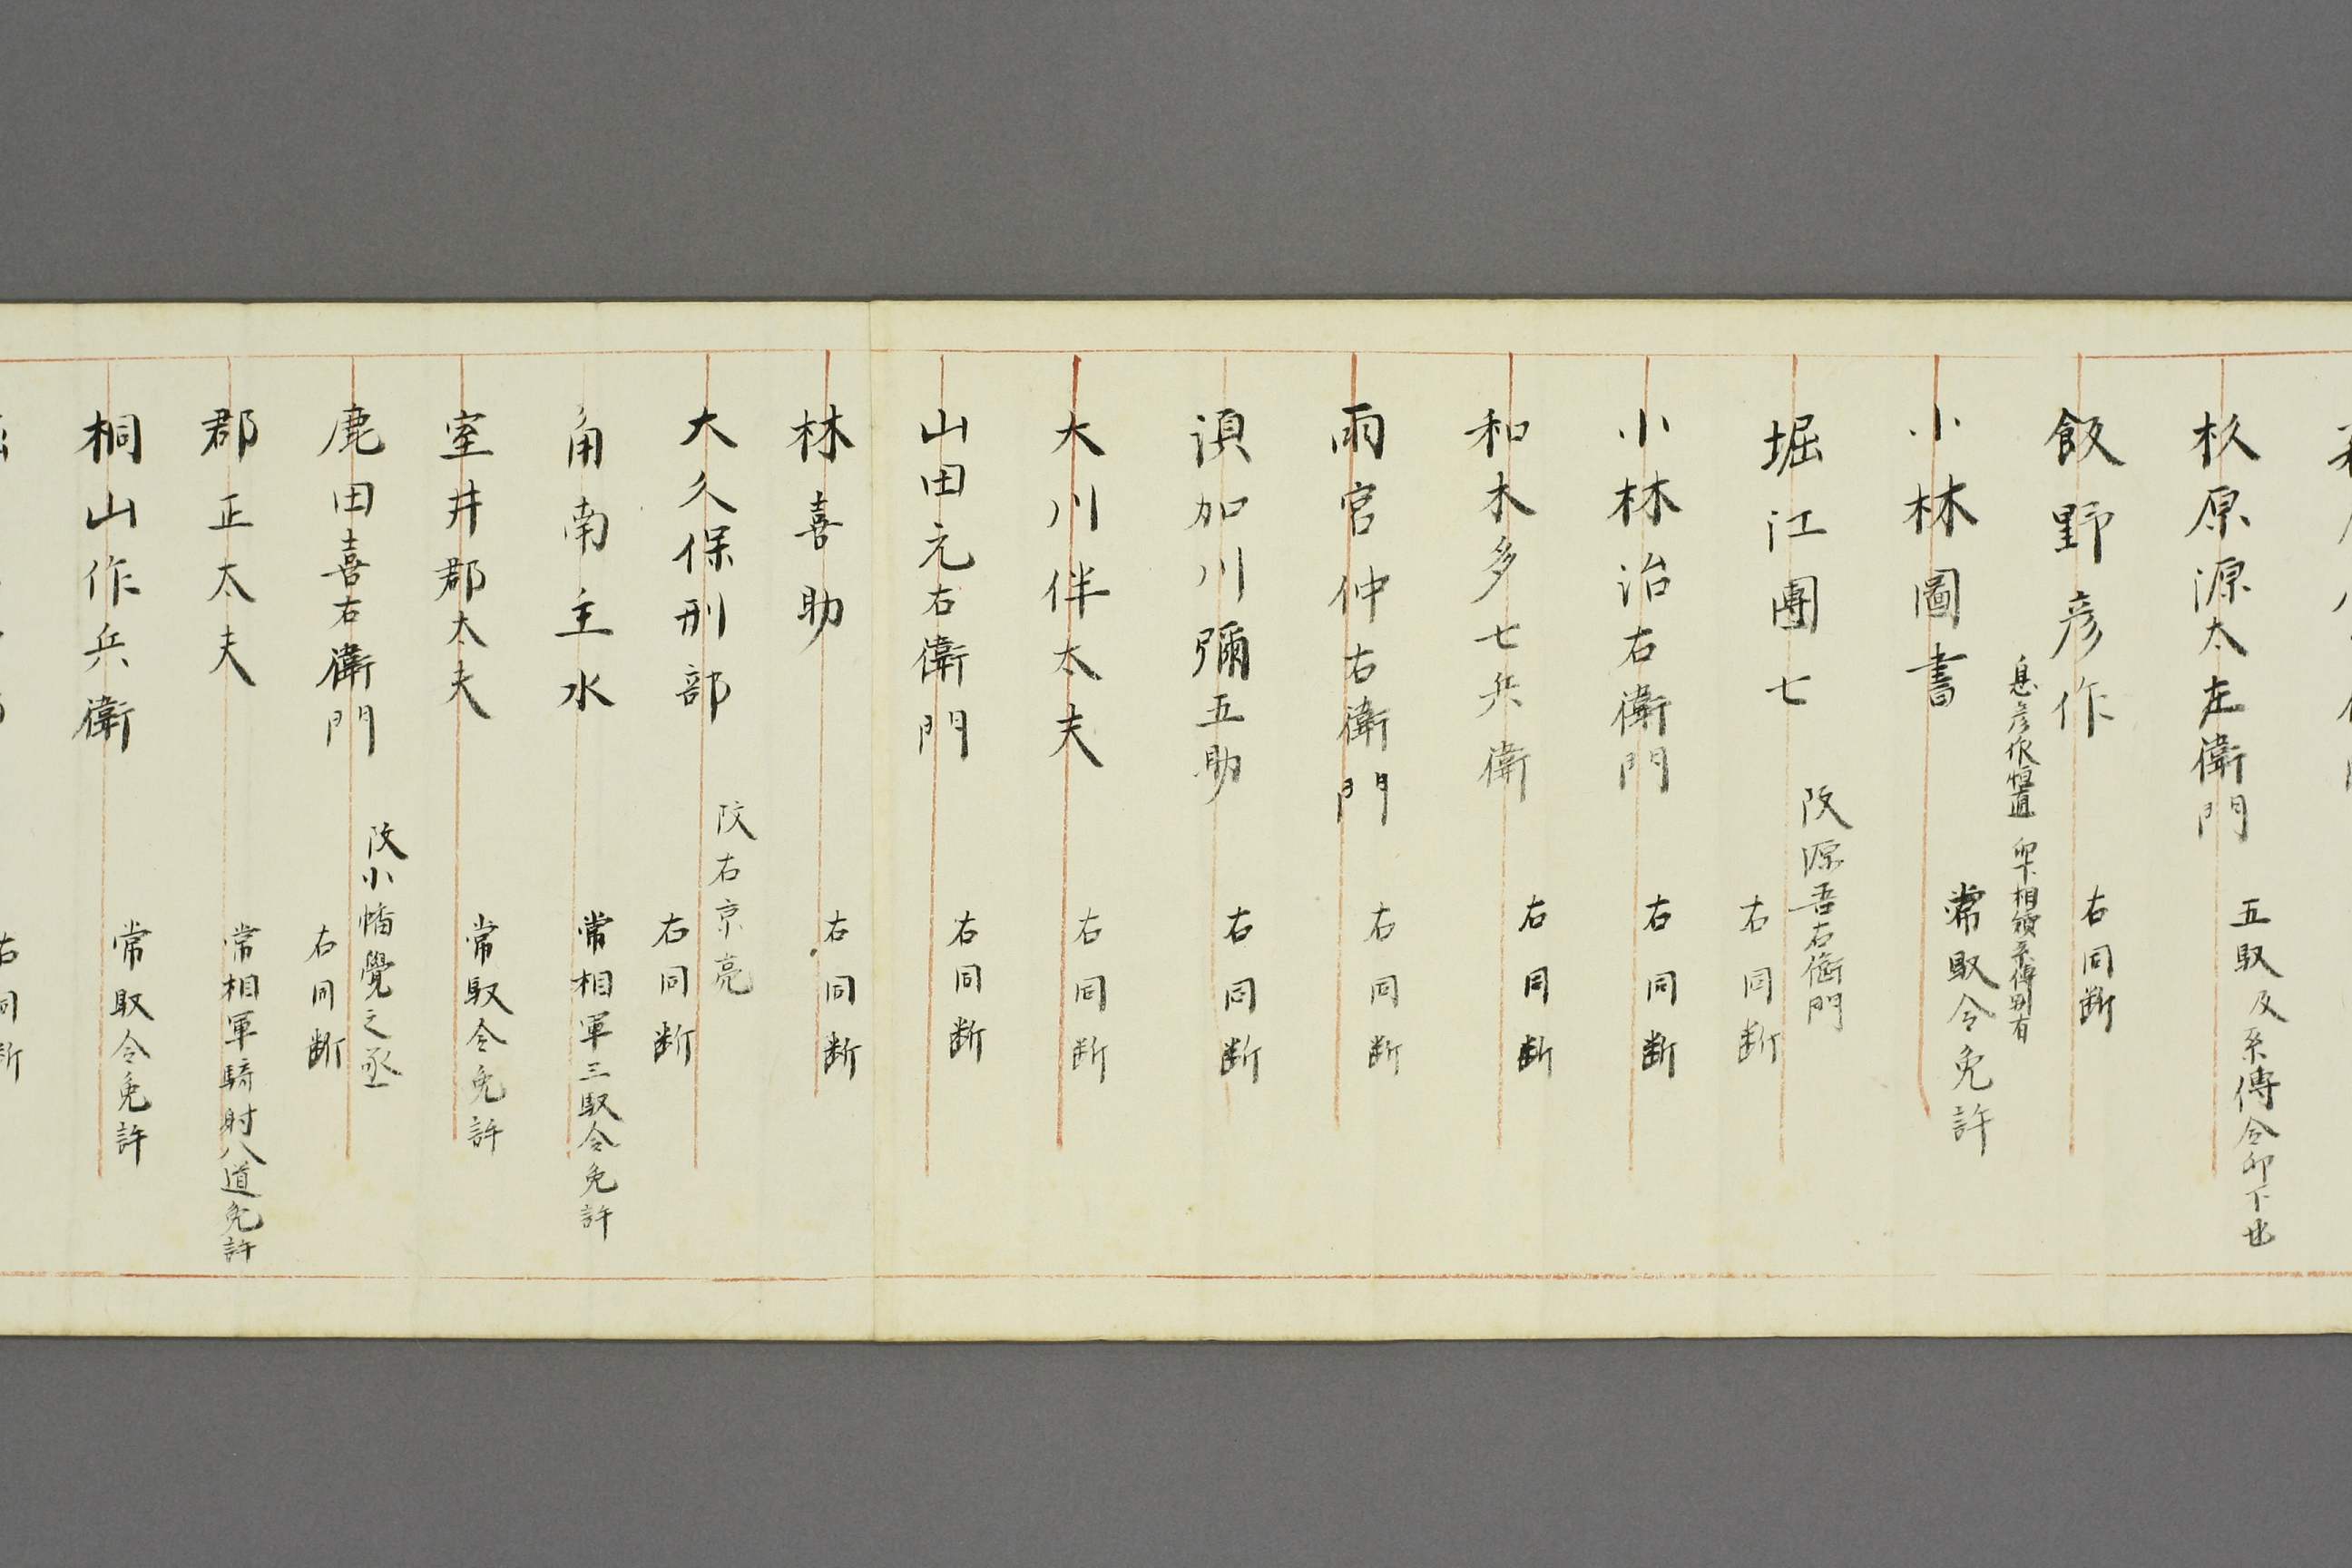 杦原源太左衛門
五馭及系傳令卯下也
飯野彦作
右同断
息彦作恒直
相續系傳別有
小林圖書
常馭令免許
堀江團七
改源吾右衛門
右同断
小林治右衛門
右同断
和木多七兵衛
右同断
雨宮仲右衛門
右同断
須加川彌五助
右同断
大川伴太夫
右同断
山田元右衛門
右同断
林喜助
右同断
大久保刑部
改右京亮
右同断
角南主水
常相軍三馭令免許
室井郡太夫
常馭令免許
鹿田喜右衛門
改小幡覺之丞
右同断
郡正太夫
常相軍騎射八道免許
桐山作兵衛
常馭令免許
右同断